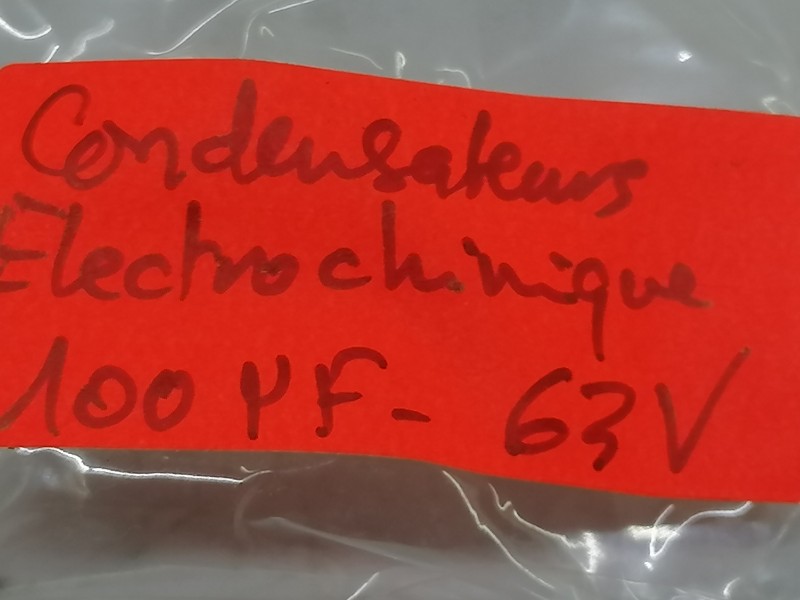 Condensateurs
Électrochimique
100 µF - 63V